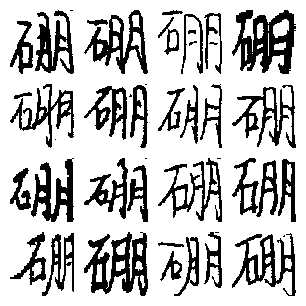 硼硼硼硼
硼硼硼硼
硼硼硼硼
硼硼硼硼